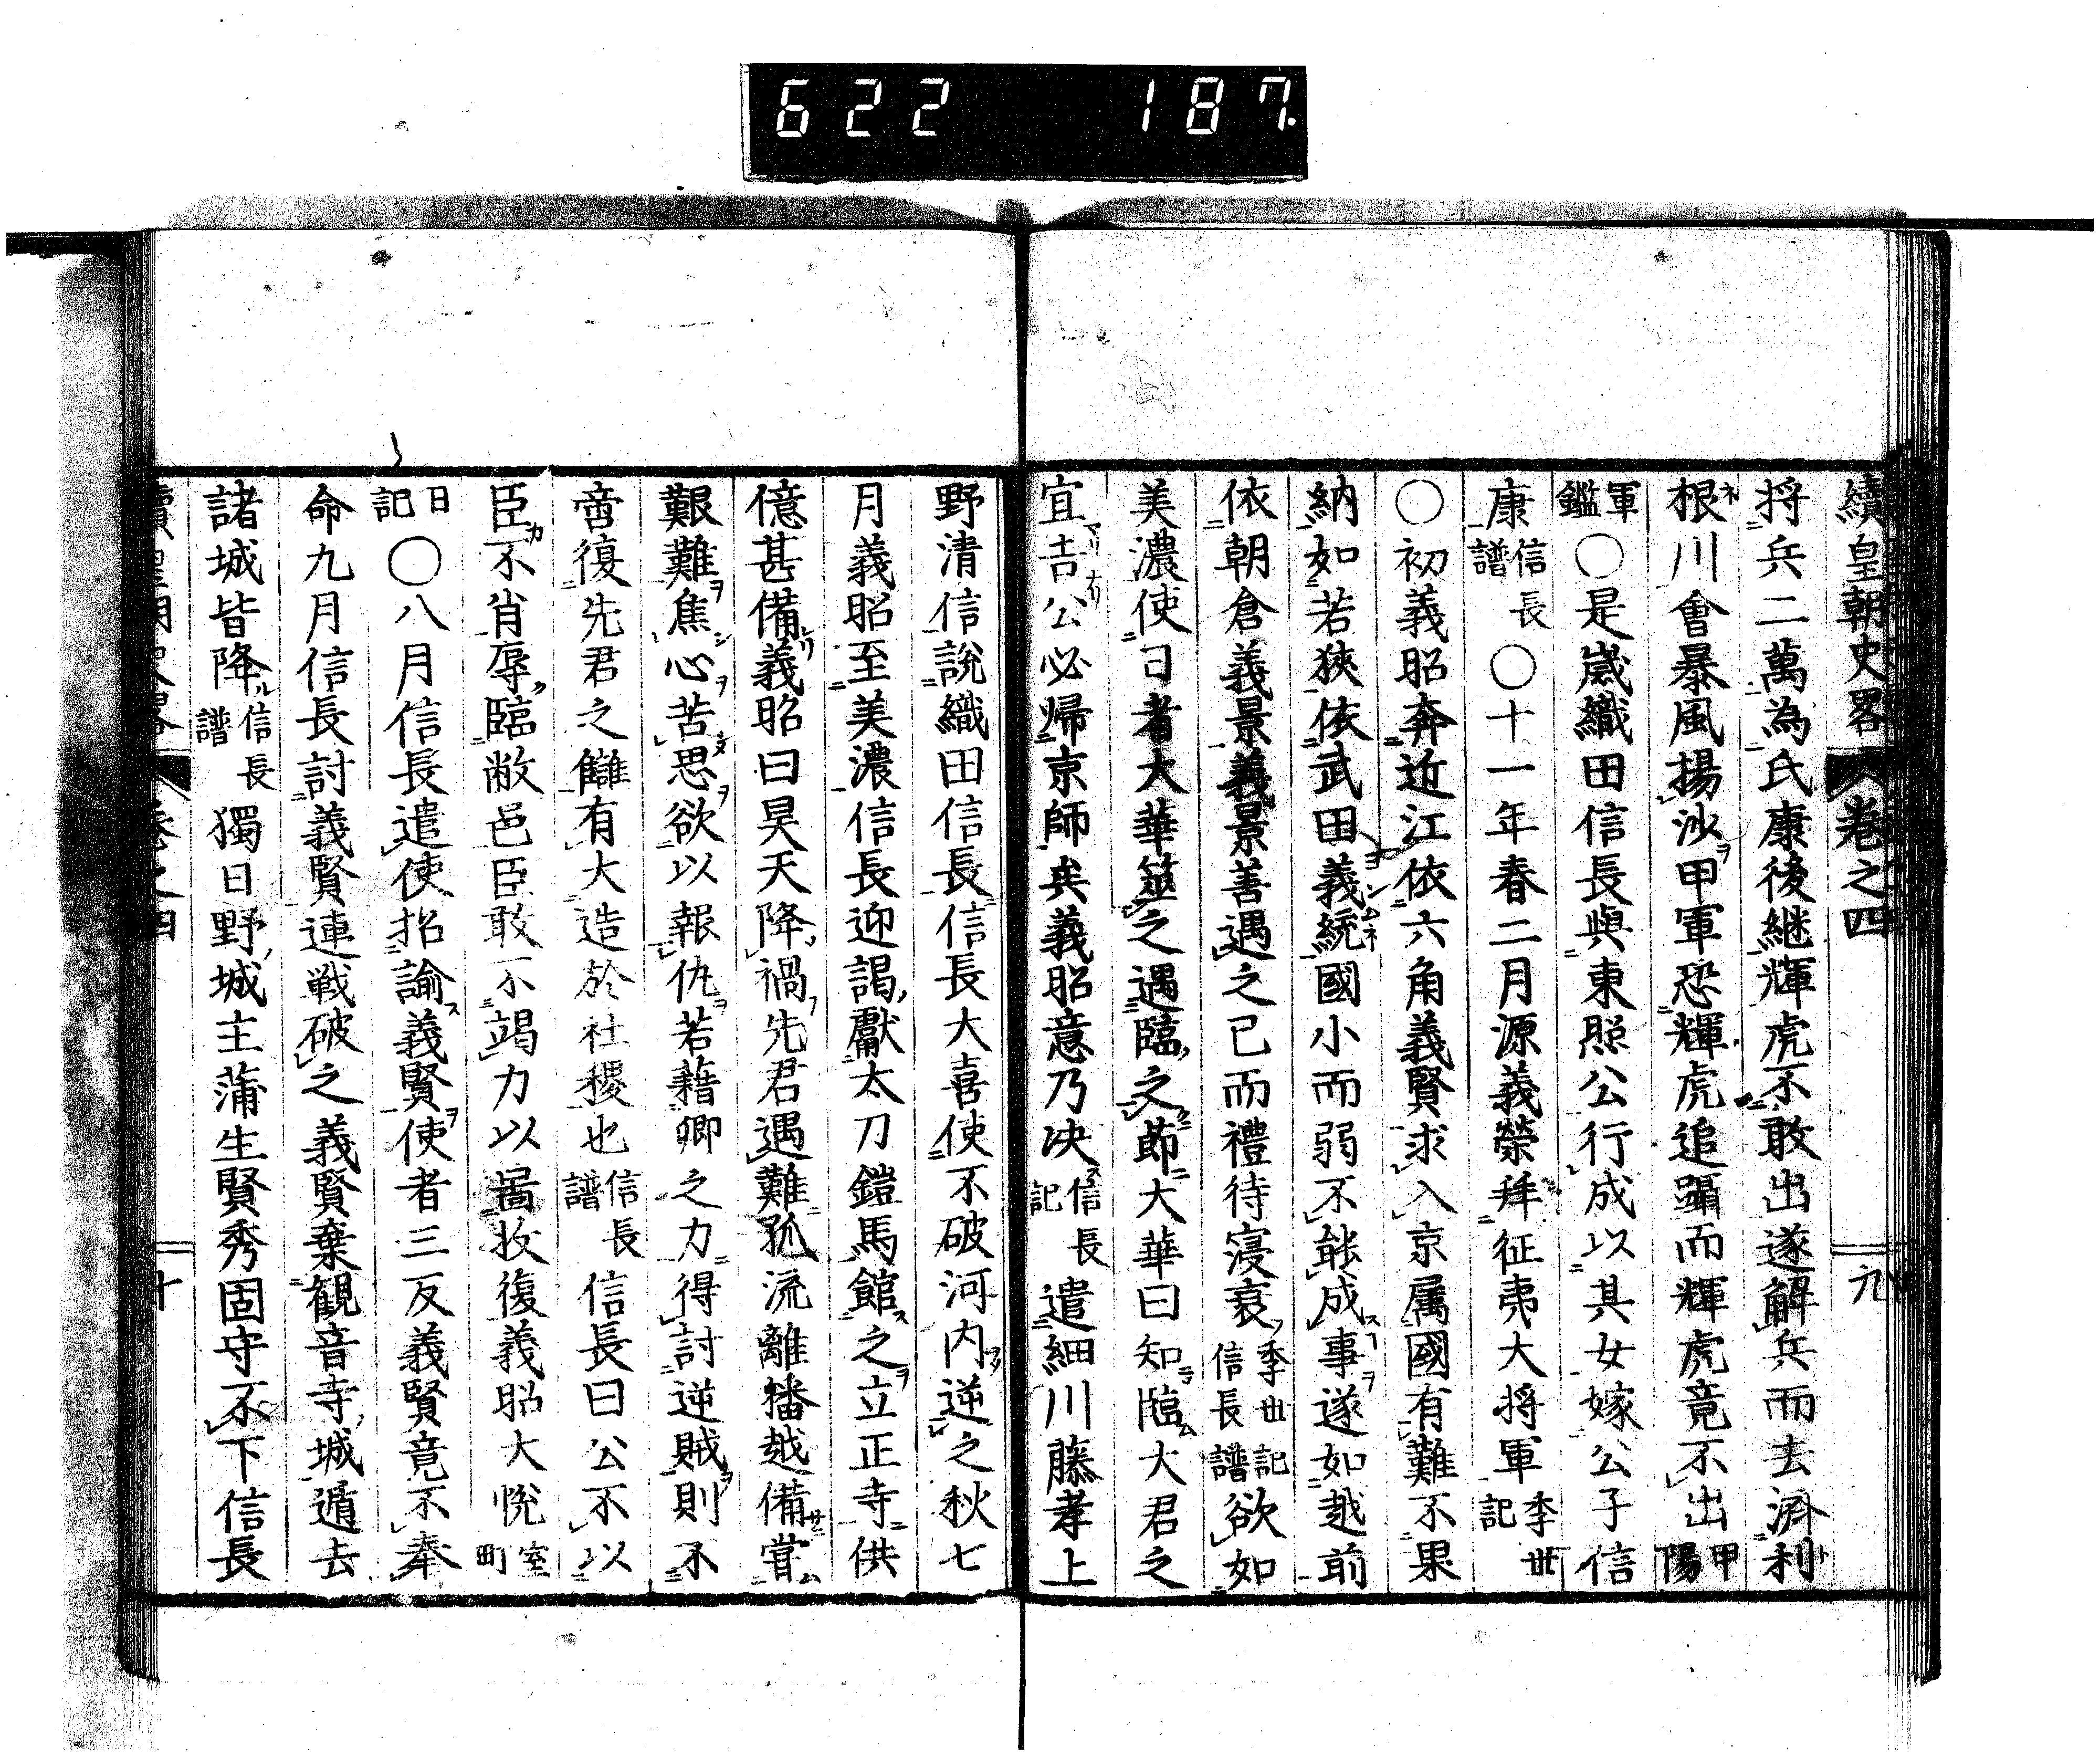 622 187
續皇朝史畧 卷之四 九
将兵二萬為氏康後継輝虎不敢出遂解兵而去済利
根川會暴風揚沙甲軍恐輝虎追躡而輝虎竟不出甲陽
軍鑑〇是歳織田信長與東照公行成以其女嫁公子信
康信長譜〇十一年春二月源義榮拜征夷大将軍季世記
〇初義昭奔近江依六角義賢求入京属國有難不果
納如若狹依武田義統國小而弱不能成事遂如越前
依朝倉義景義景善遇之已而禮待寖衰季世記信長譜欲如
美濃使日者大華筮之遇臨之節大華曰知臨大君之
宜吉公必帰京師矣義昭意乃决信長記遣細川藤孝上
野清信説織田信長信長大喜使不破河内逆之秋七
月義昭至美濃信長迎謁獻太刀鎧馬館之立正寺供
億甚備義昭曰昊天降禍先君遇難孤流離播越備嘗
艱難焦心苦思欲以報仇若藉卿之力得討逆賊則不
啻復先君之讎有大造於社稷也信長譜信長曰公不以
臣不肖辱臨敝邑臣敢不竭力以啚攸復義昭大悦室町
日記〇八月信長遣使招諭義賢使者三反義賢竟不奉
命九月信長討義賢連戦破之義賢棄観音寺城遁去
諸城皆降信長譜獨日野城主蒲生賢秀固守不下信長